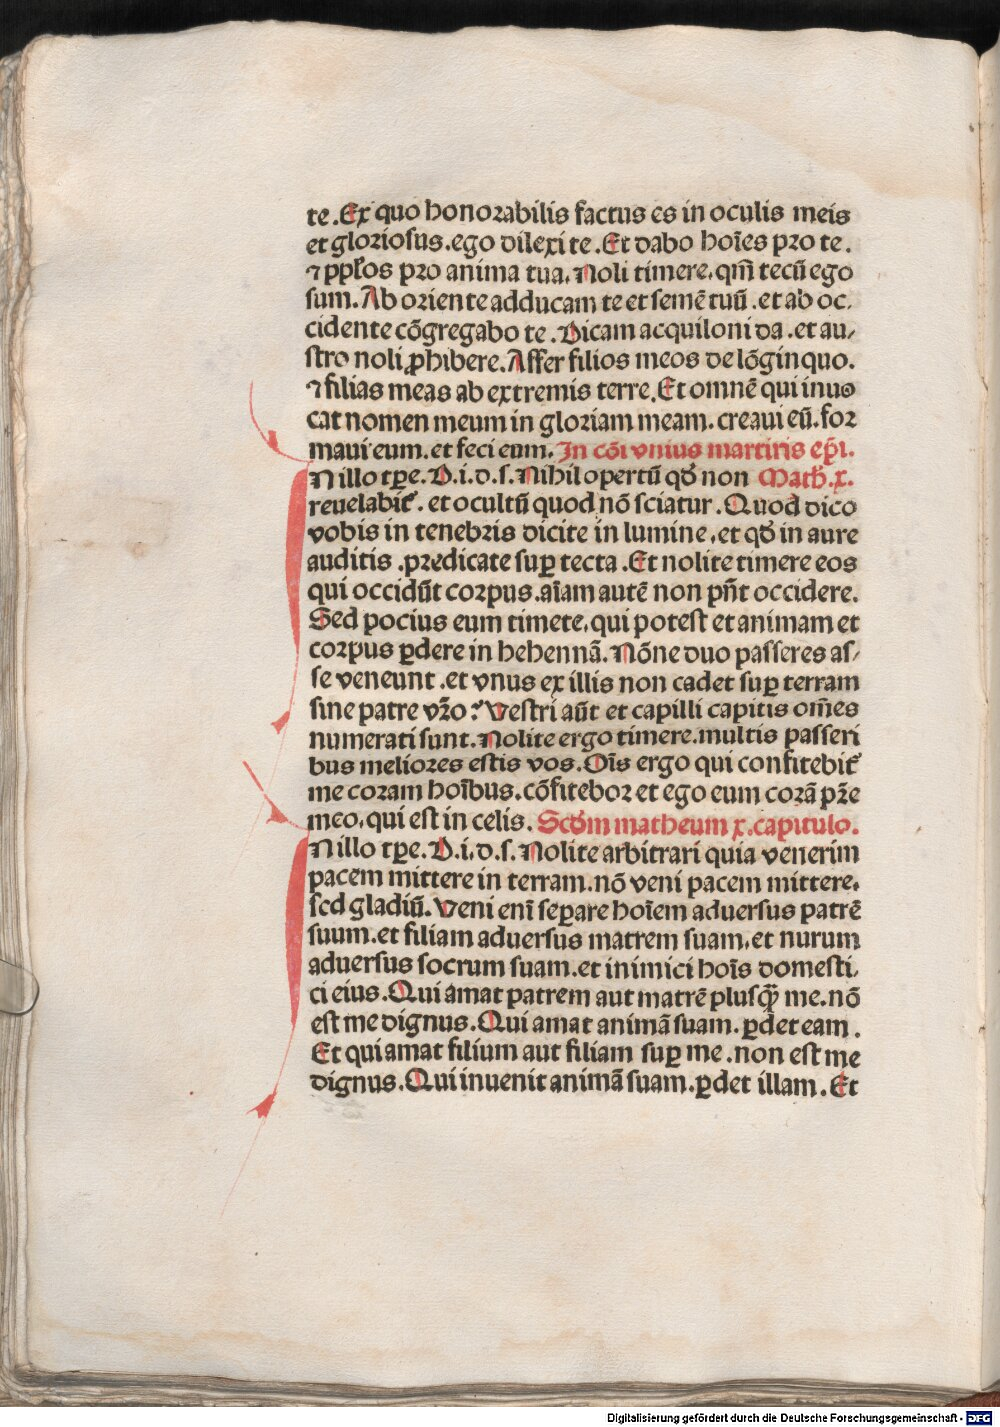 te. Ex quo honorabilis factus es in oculis meis
et gloriosus. ego dilexi te. Et dabo hoı̄es pro te.
⁊ ppl̄os pro anima tua. Noli timere. qm̄ tecū ego
sum. Ab oriente adducam te et semē tuū. et ab oc-
cidente cōgregabo te. Dicam acquiloni da. et au-
stro noli ꝓhibere. Affer filios meos de lōginquo.
⁊ filias meas ab extremis terre. Et omnē qui inuo
cat nomen meum in gloriam meam. creaui eū. for
maui eum. et feci eum. In cōı vnius martiris ep̄ı.
N illo tꝑe. D. i. d. s. Nihil opertū qđ non Math. x.
reuelabit᷑. et ocultū quod nō sciatur. Quod dico
vobis in tenebris dicite in lumine. et qđ in aure
auditis. predicate suꝑ tecta. Et nolite timere eos
qui occidūt corpus. aı̄am autē non pn̄t occidere.
Sed pocius eum timete, qui potest et animam et
corpus ꝑdere in hehennā. Nōne duo passeres as-
se veneunt. et vnus ex illis non cadet suꝑ terram
sine patre vr̄o? Vestri aūt et capilli capitis om̄es
numerati sunt. Nolite ergo timere. multis passeri
bus meliores estis vos. Oı̄s ergo qui confitebit᷑
me coram hoı̄bus. cōfitebor et ego eum corā pr̄e
meo, qui est in celis. Scđm matheum x. capitulo.
N illo tꝑe. D. i. d. s. Nolite arbitrari quia venerim
pacem mittere in terram. nō veni pacem mittere.
sed gladiū. Veni enı̄ seꝑare hoı̄em aduersus patrē
suum. et filiam aduersus matrem suam. et nurum
aduersus socrum suam. et inimici hoı̄s domesti-
ci eius. Qui amat patrem aut matrē plusq̄ȝ me. nō
est me dignus. Qui amat animā suam. ꝑdet eam.
Et qui amat filium aut filiam suꝑ me. non est me
dignus. Qui inuenit animā suam. ꝑdet illam. Et
Digitalisierung gefördert durch die Deutsche Forschungsgemeinschaft - DFG